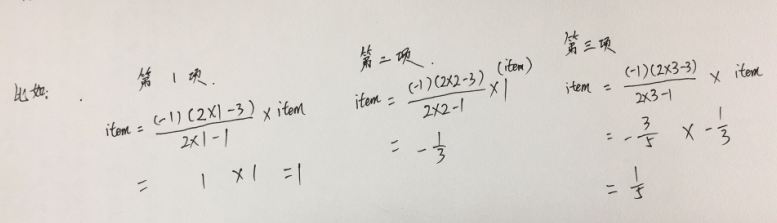 比如:
第1项.
item = (-1)(2×1-3) / 2×1-1 × item
= 1 ×1 =1
第二项.
item = (-1)(2×2-3) / 2×2-1 ×1 (item)
= - 1/3
第三项
item = (-1)(2×3-3) / 2×3-1 × item
= - 3/5 × - 1/3
= 1/5